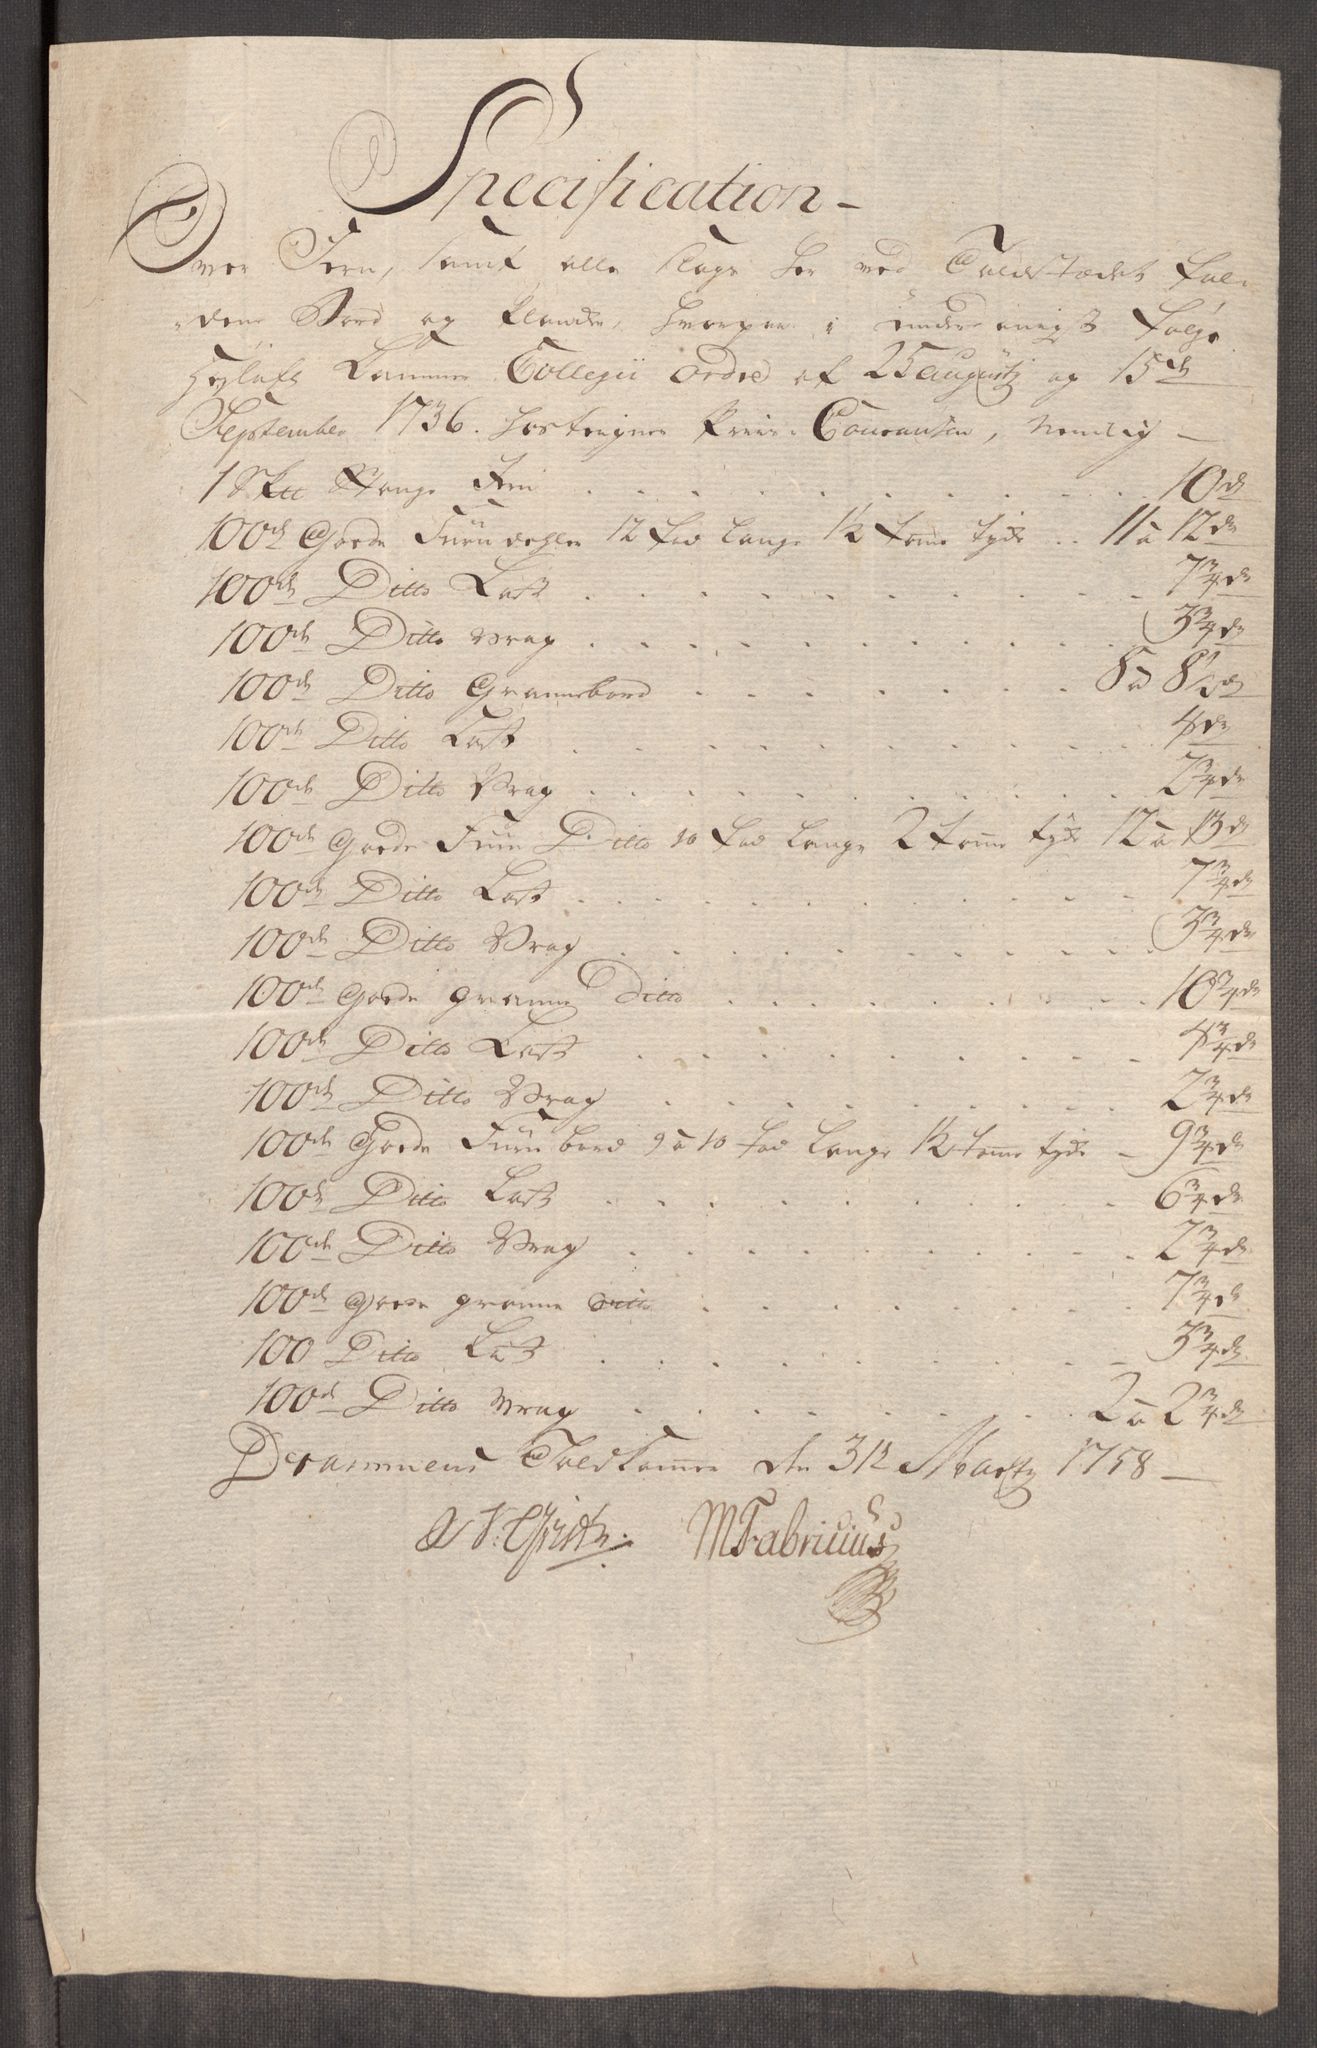 Specification
Over Jern, samt alle slags her ved Toldstædet fal-
dene Bord og Planker, hvorpaa i underdanigst følge
Høylofl. Cammer Collegii Ordre af 25 Augustj og 15de
September 1736. hostegner Priis Couranten, Nemlig
1 Sk℔ Stange Jern . . . 10 rd
100de Goede Furudehler 12 fod lange 1½ tomme tyk .. 11 a 12 rd
100de Ditto Last . . . 7¾ rd
100de Ditto Vrag . . . 3¾ rd
100de Ditto Grannebord . . . 8 a 8½ rd
100de Ditto Last . . . 4 rd
100de Ditto Vrag . . . 2¾ rd
100de Goede Furu Ditto 10 fod lange 2 tomme tyk 12 a 13 rd
100de Ditto Last . . . 7¾ rd
100de Ditto Vrag . . . 3¾ rd
100de Goede granne Ditto . . . 10¾ rd
100de Ditto Last . . . 4¾ rd
100de Ditto Vrag . . . 2¾ rd
100de Goede Furu bord 9 a 10 fod lange 1½ tomme tyk - 9¾ rd
100de Ditto Last . . . 6¾ rd
100de Ditto Vrag . . . 2¾ rd
100de goede granne Ditto . . . 7¾ rd
100 Ditto Last . . . 3¾ rd
100de Ditto Vrag . . . 2 a 2¾ rd
Drammens Toldkammer den 31te Martj 1758
MFabricius